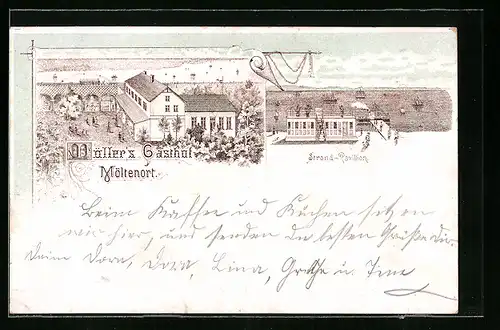 Möller's Gasthof
Möltenort.
Strand-Pavillon
Beim Kaffee und Kuchen sitzen
wir hier, und senden Dir besten Grüße Dir
Deine Dora, Dora, Lina, Grethe u. Tine